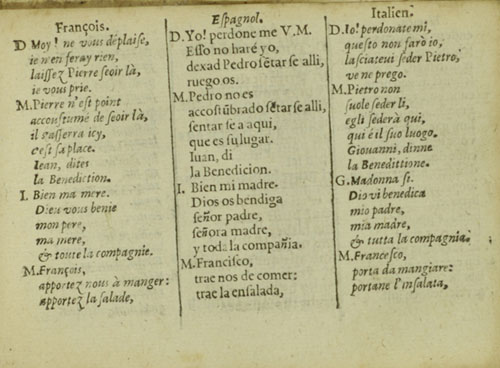 François.
D. Moy! ne vous déplaise,
ie n'en feray rien,
laissez Pierre seoir là,
ie vous prie.
M. Pierre n'est point
accoustumé de seoir là,
il s'asserra icy,
c'est sa place.
Iean, dites
la Benediction.
I. Bien ma mere.
Dieu vous benie
mon pere,
ma mere,
& toute la compagnie.
M. François,
apportez nous à manger:
apportez la salade,
Espagnol.
D. Yo! perdone me V. M.
Esso no haré yo,
dexad Pedro sẽtar se alli,
ruego os.
M. Pedro no es
accostũbrado sẽtar se alli,
sentar se a aqui,
que es su lugar.
Iuan, di
la Benedicion.
I. Bien mi madre.
Dios os bendiga
señor padre,
señora madre,
y toda la compañia.
M. Francisco,
trae nos de comer:
trae la ensalada,
Italien.
D. Io! perdonate mi,
questo non farò io,
lasciateui seder Pietro,
ve ne prego.
M. Pietro non
suole seder li,
egli sederà qui,
qui è il suo luogo.
Giouanni, dinne
la Benedittione.
G. Madonna si.
Dio vi benedica
mio padre,
mia madre,
& tutta la compagnia.
M. Francesco,
porta da mangiare:
portane l'insalata,